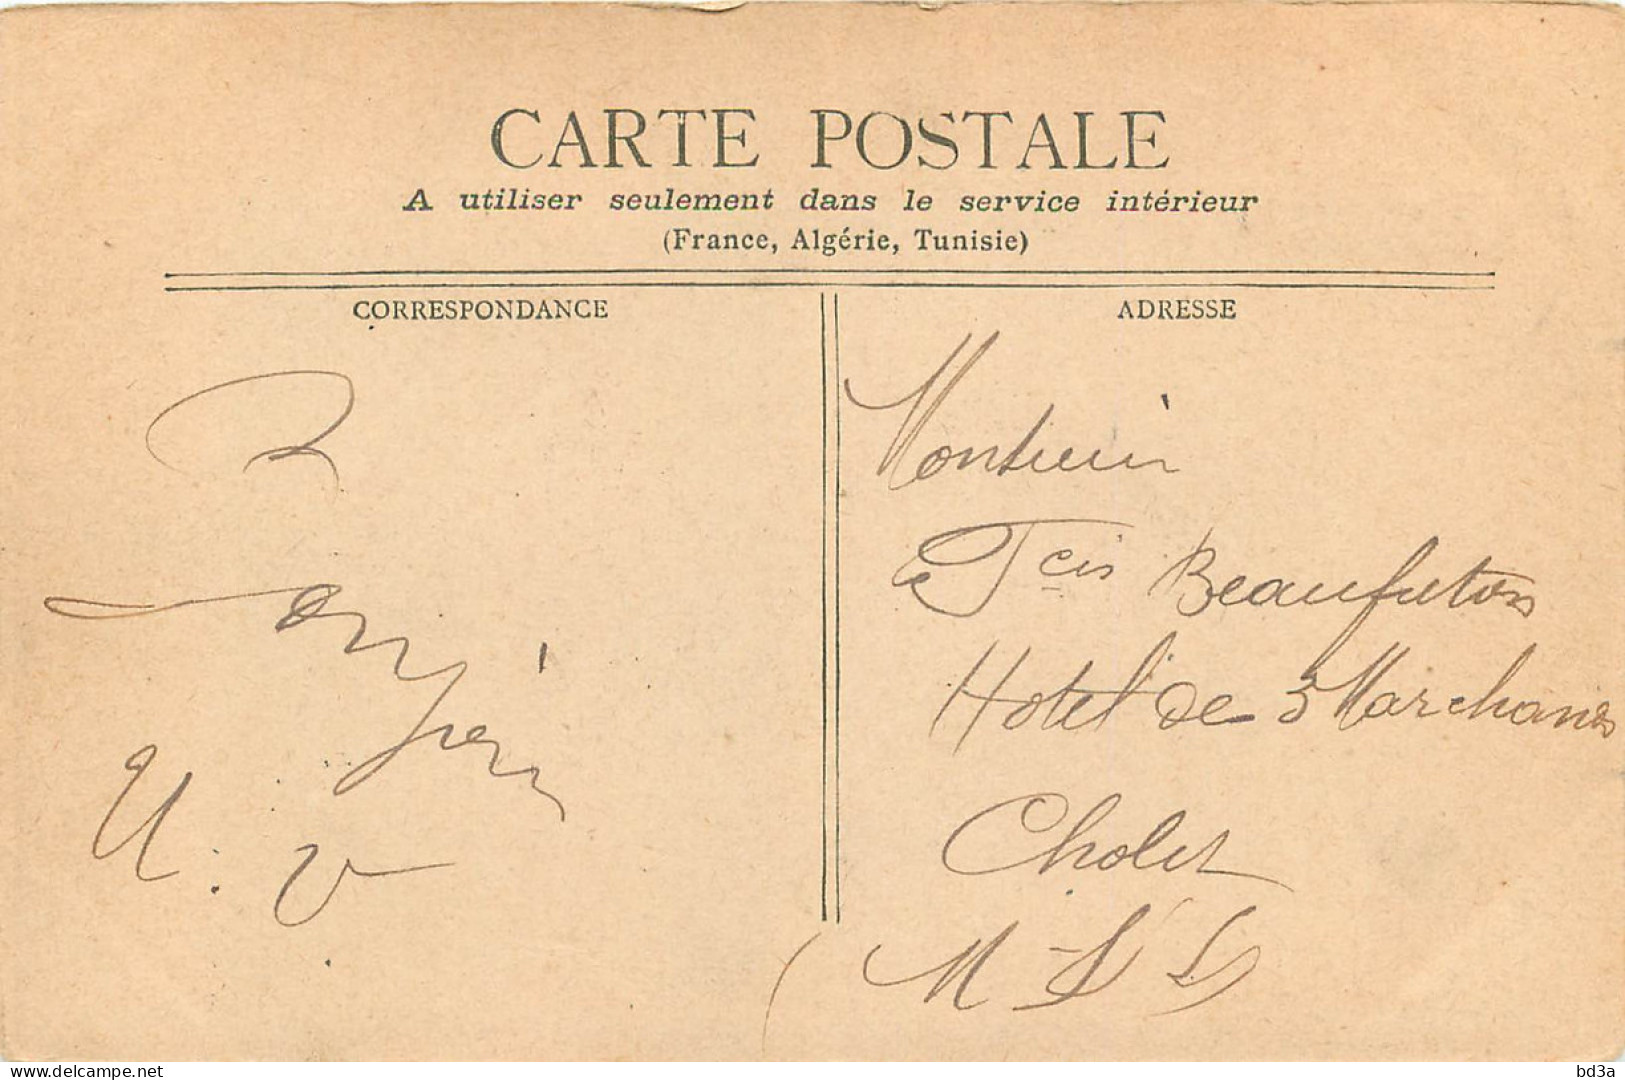 CARTE POSTALE
A utiliser seulement dans le service intérieur
(France, Algérie, Tunisie)
CORRESPONDANCE
ADRESSE
Monsieur
Fcis Beaufreton
Hotel de 3 Marchands
Cholet
M & L
www.delcampe.net
bd3a